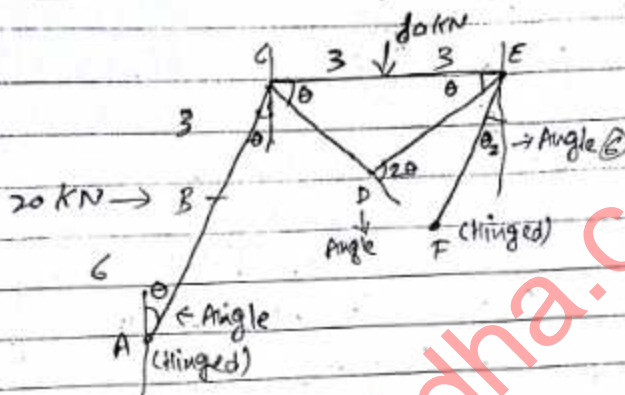 80KN
C 3 3 E
θ θ
3
θ θ₂ → Angle ⑥
20 KN → B D 2θ
Angle F (Hinged)
6
θ
← Angle
A
(Hinged)
dha.c